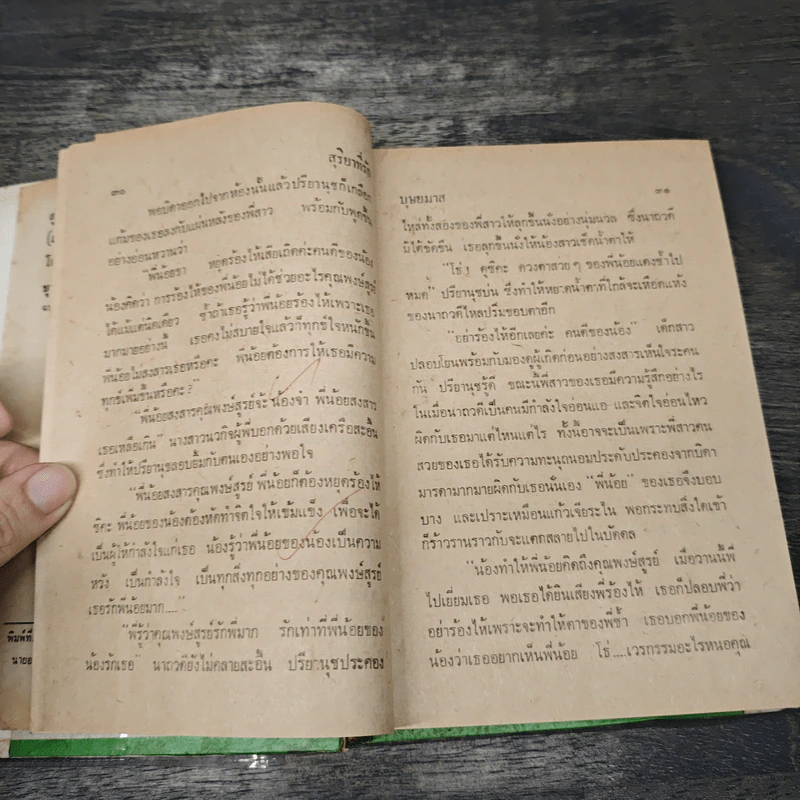 ๓๐
สุริยาที่รัก
พอบิดาออกไปจากห้องนั้นแล้วปรียานุชก็เกลือก
แก้มของเธอลงกับแผ่นหลังของพี่สาว พร้อมกับพูดขึ้น
อย่างอ่อนหวานว่า
"พี่น้อยขา หยุดร้องไห้เสียเถิดค่ะคนดีของน้อง
น้องคิดว่า การร้องไห้ของพี่น้อยไม่ได้ช่วยอะไรคุณพงษ์สูรย์
ได้แม้แต่นิดเดียว ซ้ำถ้าเธอรู้ว่าพี่น้อยร้องไห้เพราะเธอ
มากมายอย่างนี้ เธอคงไม่สบายใจแล้วก็ทุกข์ใจหนักขึ้น
พี่น้อยไม่สงสารเธอหรือคะ พี่น้อยต้องการให้เธอมีความ
ทุกข์เพิ่มขึ้นหรือคะ?"
"พี่น้อยสงสารคุณพงษ์สูรย์จ้ะ น้องจ๋า พี่น้อยสงสาร
เธอเหลือเกิน" นางสาวนวกิจผู้พี่บอกด้วยเสียงเครือสะอื้น
ซึ่งทำให้ปรียานุชลอบยิ้มกับตนเองอย่างพอใจ
"พี่น้อยสงสารคุณพงษ์สูรย์ พี่น้อยก็ต้องหยุดร้องไห้
ซิคะ พี่น้อยของน้องต้องหัดทำจิตใจให้เข้มแข็ง เพื่อจะได้
เป็นผู้ให้กำลังใจแก่เธอ น้องรู้ว่าพี่น้อยของน้องเป็นความ
หวัง เป็นกำลังใจ เป็นทุกสิ่งทุกอย่างของคุณพงษ์สูรย์
เธอรักพี่น้อยมาก....."
"พี่รู้ว่าคุณพงษ์สูรย์รักพี่มาก รักเท่าที่พี่น้อยของ
น้องรักเธอ" นาถวดียังไม่คลายสะอื้น ปรียานุชประคอง
บุษยมาส
๓๑
ไหล่ทั้งสองของพี่สาวให้ลุกขึ้นนั่งอย่างนุ่มนวล ซึ่งนาถวดี
มิได้ขัดขืน เธอลุกขึ้นนั่งให้น้องสาวเช็ดน้ำตาให้
"โธ่! ดูซิคะ ดวงตาสวยๆ ของพี่น้อยแดงช้ำไป
หมด" ปรียานุชบ่น ซึ่งทำให้หยาดน้ำตาที่ใกล้จะเหือดแห้ง
ของนาถวดีไหลปรี่มขอบตาอีก
"อย่าร้องไห้อีกเลยค่ะ คนดีของน้อง" เด็กสาว
ปลอบโยนพร้อมกับมองดูผู้เกิดก่อนอย่างสงสารเห็นใจระคน
กัน ปรียานุชรู้ดี ขณะนี้พี่สาวของเธอมีความรู้สึกอย่างไร
ในเมื่อนาถวดีเป็นคนมีกำลังใจอ่อนแอ และจิตใจอ่อนไหว
ผิดกับเธอมาแต่ไหนแต่ไร ทั้งนี้อาจจะเป็นเพราะพี่สาวคน
สวยของเธอได้รับความทะนุถนอมประคับประคองจากบิดา
มารดามากมายผิดกับเธอนั่นเอง "พี่น้อย" ของเธอจึงบอบ
บาง และเปราะเหมือนแก้วเจียระไน พอกระทบสิ่งใดเข้า
ก็ร้าวรานราวกับจะแตกสลายไปในบัดดล
"น้องทำให้พี่น้อยคิดถึงคุณพงษ์สูรย์ เมื่อวานนี้พี่
ไปเยี่ยมเธอ พอเธอได้ยินเสียงพี่ร้องไห้ เธอก็ปลอบพี่ว่า
อย่าร้องไห้เพราะจะทำให้ตาของพี่ช้ำ เธอบอกพี่น้อยของ
น้องว่าเธออยากเห็นพี่น้อย โธ่....เวรกรรมอะไรหนอคุณ
พิมพ์ที่